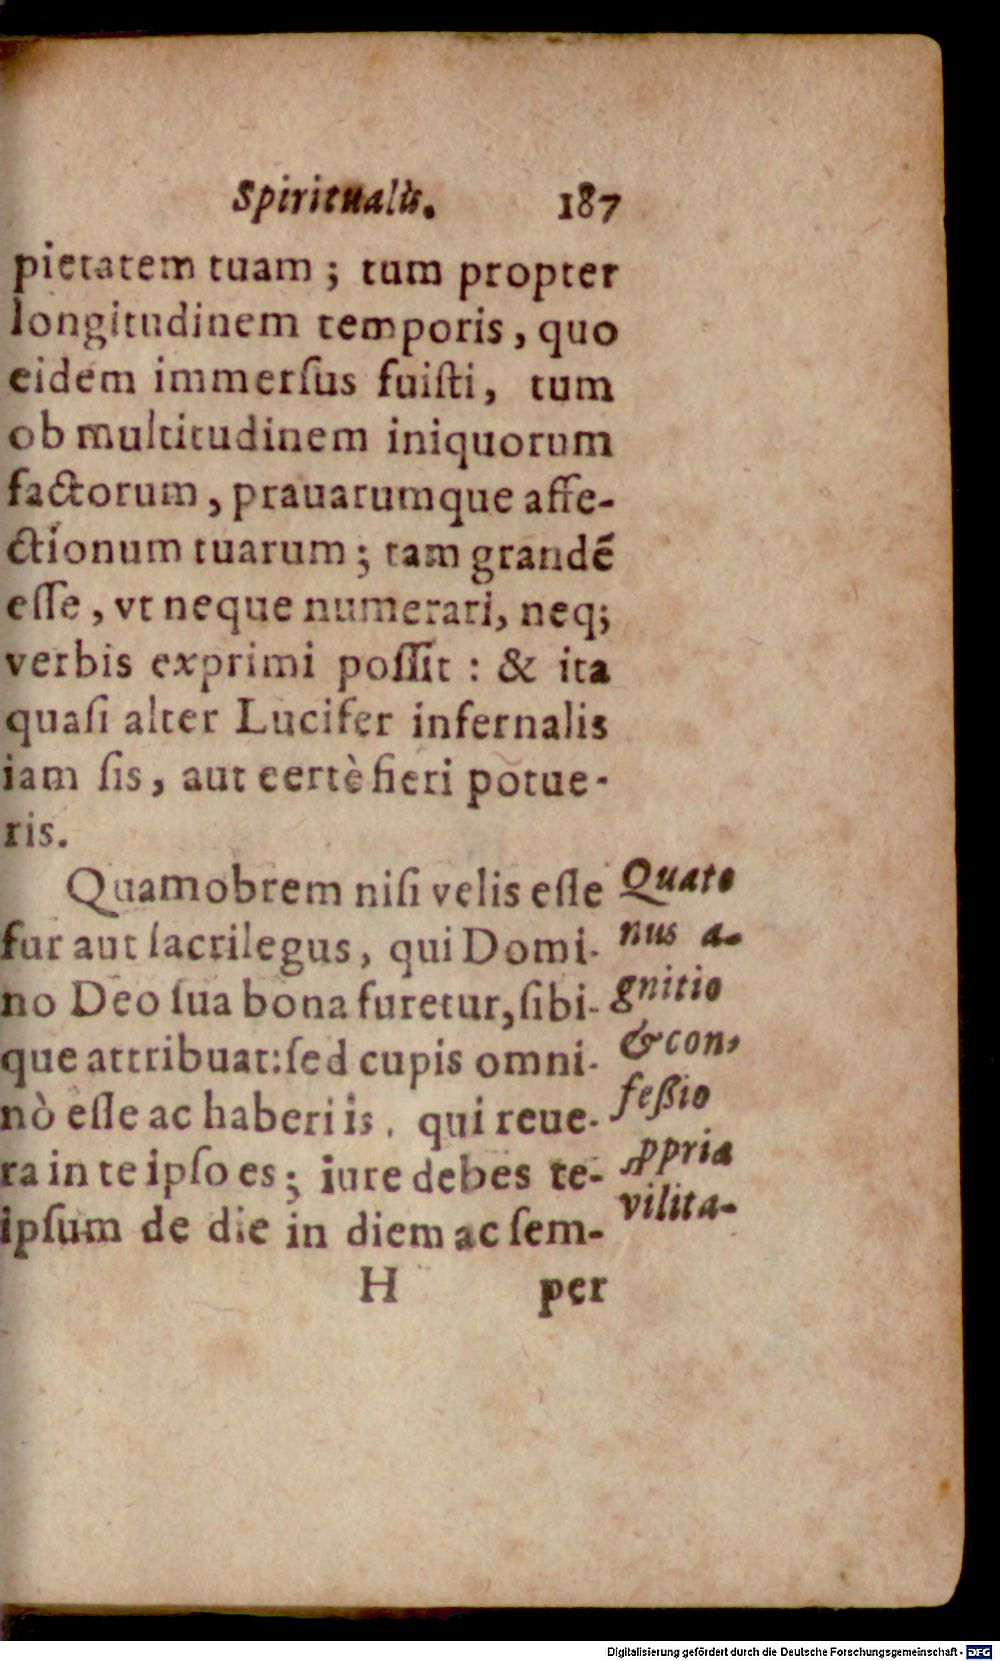 Spiritualis. 187
pietatem tuam ; tum propter
longitudinem temporis, quo
eidem immerſus fuiſti, tum
ob multitudinem iniquorum
factorum, prauarumque affe-
ctionum tuarum; tam grandē
eſſe, vt neque numerari, neq;
verbis exprimi poſſit : & ita
quaſi alter Lucifer infernalis
iam ſis, aut certè fieri potue-
ris.
Quamobrem niſi velis eſſe
fur aut ſacrilegus, qui Domi-
no Deo ſua bona furetur, ſibi-
que attribuat: ſed cupis omni-
nò eſſe ac haberi is, qui reue-
ra in te ipſo es; iure debes te-
ipſum de die in diem ac ſem-
H per
Quate
nus a-
gnitio
& con-
feßio
ꝓpria
vilita-
Digitalisierung gefördert durch die Deutsche Forschungsgemeinschaft - DFG